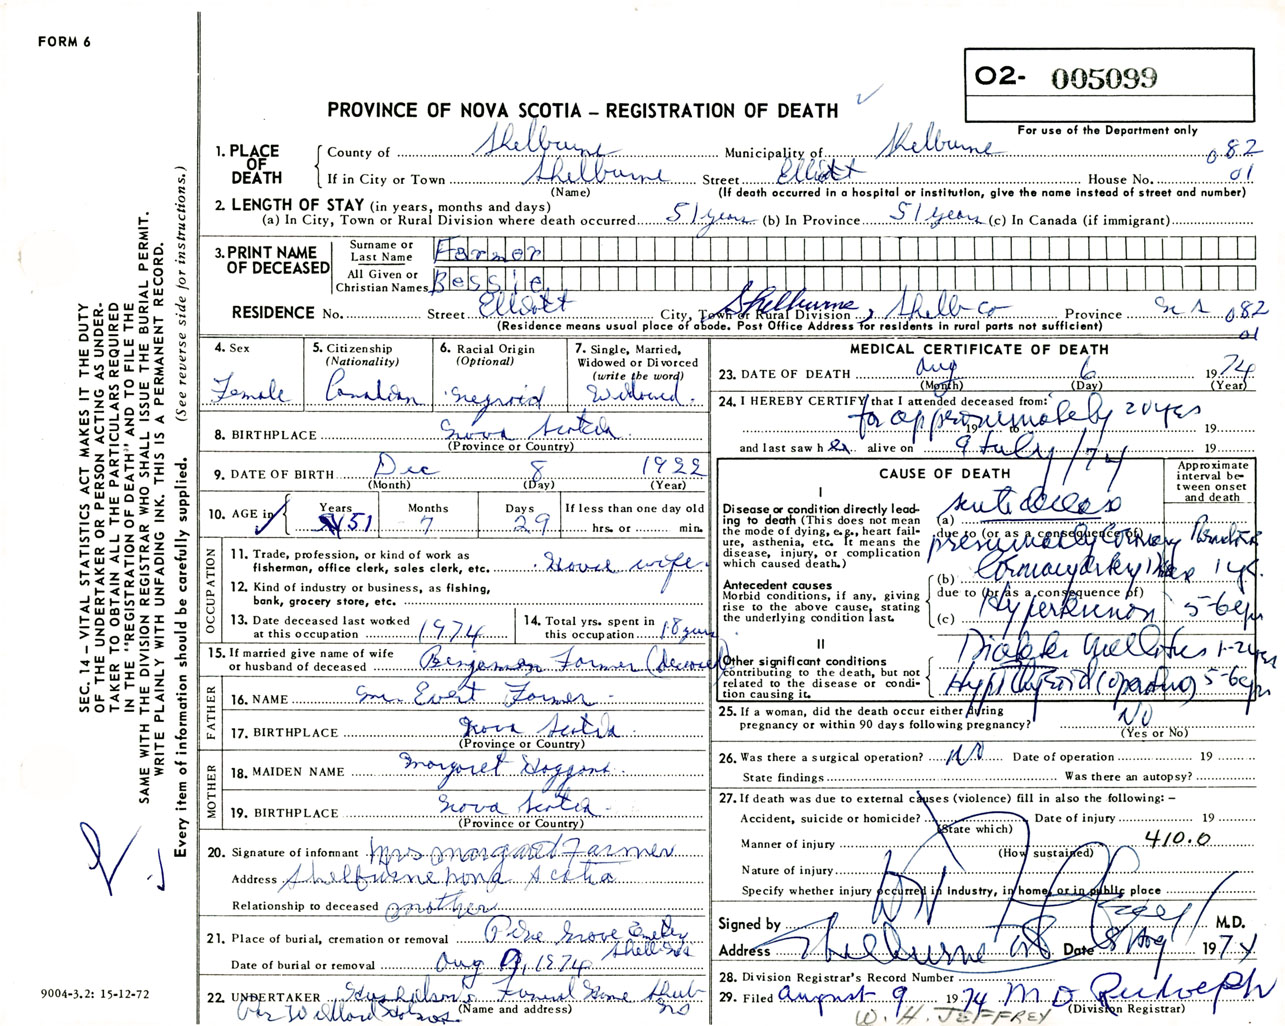 FORM 6
O2- 005099
PROVINCE OF NOVA SCOTIA – REGISTRATION OF DEATH
For use of the Department only
1. PLACE OF DEATH
County of Shelburne Municipality of Shelburne 082
If in City or Town Shelburne Street Elliott House No. 01
(Name) (If death occurred in a hospital or institution, give the name instead of street and number)
2. LENGTH OF STAY (in years, months and days)
(a) In City, Town or Rural Division where death occurred 51 years (b) In Province 51 years (c) In Canada (if immigrant)
3. PRINT NAME OF DECEASED
Surname or Last Name Farmer
All Given or Christian Names Bessie
RESIDENCE No. Street Elliott City, Town or Rural Division Shelburne, Shelb Co Province N S 082
(Residence means usual place of abode. Post Office Address for residents in rural parts not sufficient) 01
4. Sex Female
5. Citizenship (Nationality) Canadian
6. Racial Origin (Optional) Negroid
7. Single, Married, Widowed or Divorced (write the word) Widowed.
8. BIRTHPLACE Nova Scotia
(Province or Country)
9. DATE OF BIRTH Dec 8 1922
(Month) (Day) (Year)
10. AGE in Years 51 Months 7 Days 29 If less than one day old hrs. or min.
OCCUPATION
11. Trade, profession, or kind of work as fisherman, office clerk, sales clerk, etc. House wife.
12. Kind of industry or business, as fishing, bank, grocery store, etc.
13. Date deceased last worked at this occupation 1974
14. Total yrs. spent in this occupation 18 years
15. If married give name of wife or husband of deceased Benjamin Farmer (deceased)
FATHER
16. NAME Mr. Evert Farmer
17. BIRTHPLACE Nova Scotia
(Province or Country)
MOTHER
18. MAIDEN NAME Margaret
19. BIRTHPLACE Nova Scotia
(Province or Country)
20. Signature of informant Mrs Margaret Farmer
Address Shelburne Nova Scotia
Relationship to deceased mother
21. Place of burial, cremation or removal Pine Grove
Date of burial or removal Aug 9, 1974
22. UNDERTAKER Funeral Home Shelb NS
(Name and address)
MEDICAL CERTIFICATE OF DEATH
23. DATE OF DEATH Aug 6 1974
(Month) (Day) (Year)
24. I HEREBY CERTIFY that I attended deceased from:
for approximately 20 yrs
19 to 19
and last saw her alive on 9 July /74 19
CAUSE OF DEATH
Approximate interval between onset and death
I
Disease or condition directly leading to death (This does not mean the mode of dying, e.g., heart failure, asthenia, etc. It means the disease, injury, or complication which caused death.)
(a)
due to (or as a consequence of)
presumably Coronary
Antecedent causes
Morbid conditions, if any, giving rise to the above cause, stating the underlying condition last.
(b) 1 yr.
due to (or as a consequence of)
(c) Hypertension 5-6 yrs
II
Other significant conditions contributing to the death, but not related to the disease or condition causing it.
Diabetes Mellitus 1-2 yrs
5-6 yrs
25. If a woman, did the death occur either during pregnancy or within 90 days following pregnancy? No
(Yes or No)
26. Was there a surgical operation? No Date of operation 19
State findings Was there an autopsy?
27. If death was due to external causes (violence) fill in also the following: –
Accident, suicide or homicide? Date of injury 19
(State which)
Manner of injury 410.0
(How sustained)
Nature of injury
Specify whether injury occurred in Industry, in home, or in public place
Signed by M.D.
Address Shelburne NS Date 8 Aug 1974
28. Division Registrar's Record Number
29. Filed August 9 1974 M D Rudolph
(Division Registrar)
W. H. JEFFREY
SEC. 14 – VITAL STATISTICS ACT MAKES IT THE DUTY
OF THE UNDERTAKER OR PERSON ACTING AS UNDER-
TAKER TO OBTAIN ALL THE PARTICULARS REQUIRED
IN THE "REGISTRATION OF DEATH" AND TO FILE THE
SAME WITH THE DIVISION REGISTRAR WHO SHALL ISSUE THE BURIAL PERMIT.
WRITE PLAINLY WITH UNFADING INK. THIS IS A PERMANENT RECORD.
Every item of information should be carefully supplied. (See reverse side for instructions.)
9004-3.2: 15-12-72